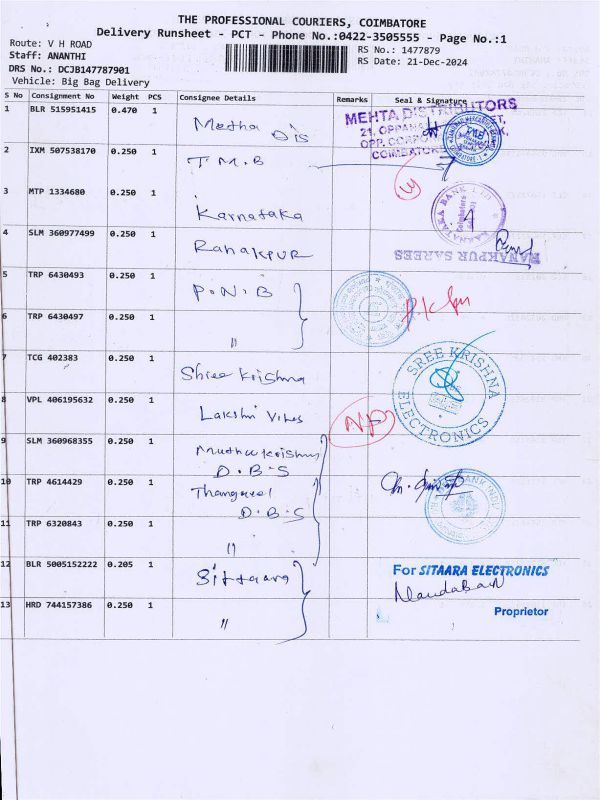 THE PROFESSIONAL COURIERS, COIMBATORE
Delivery Runsheet - PCT - Phone No.:0422-3505555 - Page No.:1
Route: V H ROAD
RS No.: 1477879
Staff: ANANTHI
RS Date: 21-Dec-2024
DRS No.: DCJB147787901
Vehicle: Big Bag Delivery
S No Consignment No Weight PCS Consignee Details Remarks Seal & Signature
1 BLR 515951415 0.470 1 Metha Dis
MEHTA DISTRIBUTORS
2 IXM 507538170 0.250 1 T.M.B
3 MTP 1334680 0.250 1 Karnataka
KARNATAKA BANK LTD
4 SLM 360977499 0.250 1 Ranakpur
RANAKPUR SAREES
5 TRP 6430493 0.250 1 P.N.B
6 TRP 6430497 0.250 1 "
7 TCG 402383 0.250 1 Shree Krishna
SREE KRISHNA ELECTRONICS
8 VPL 406195632 0.250 1 Lakshi Vilas
9 SLM 360968355 0.250 1 Muthu Krishna
D.B.S
10 TRP 4614429 0.250 1 Thangavel
D.B.S
11 TRP 6320843 0.250 1 "
12 BLR 5005152222 0.205 1 Sittaara
For SITAARA ELECTRONICS
13 HRD 744157386 0.250 1 "
Proprietor